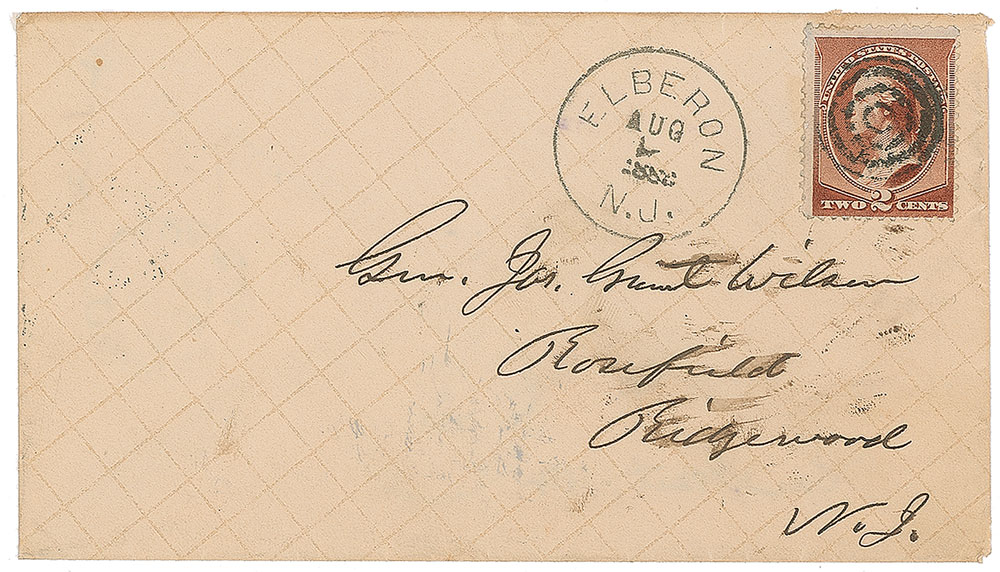 ELBERON
AUG
N.J.
UNITED STATES
TWO 2 CENTS
Gen. Jas. Grant Wilson
Rosefield
Ridgewood
N.J.